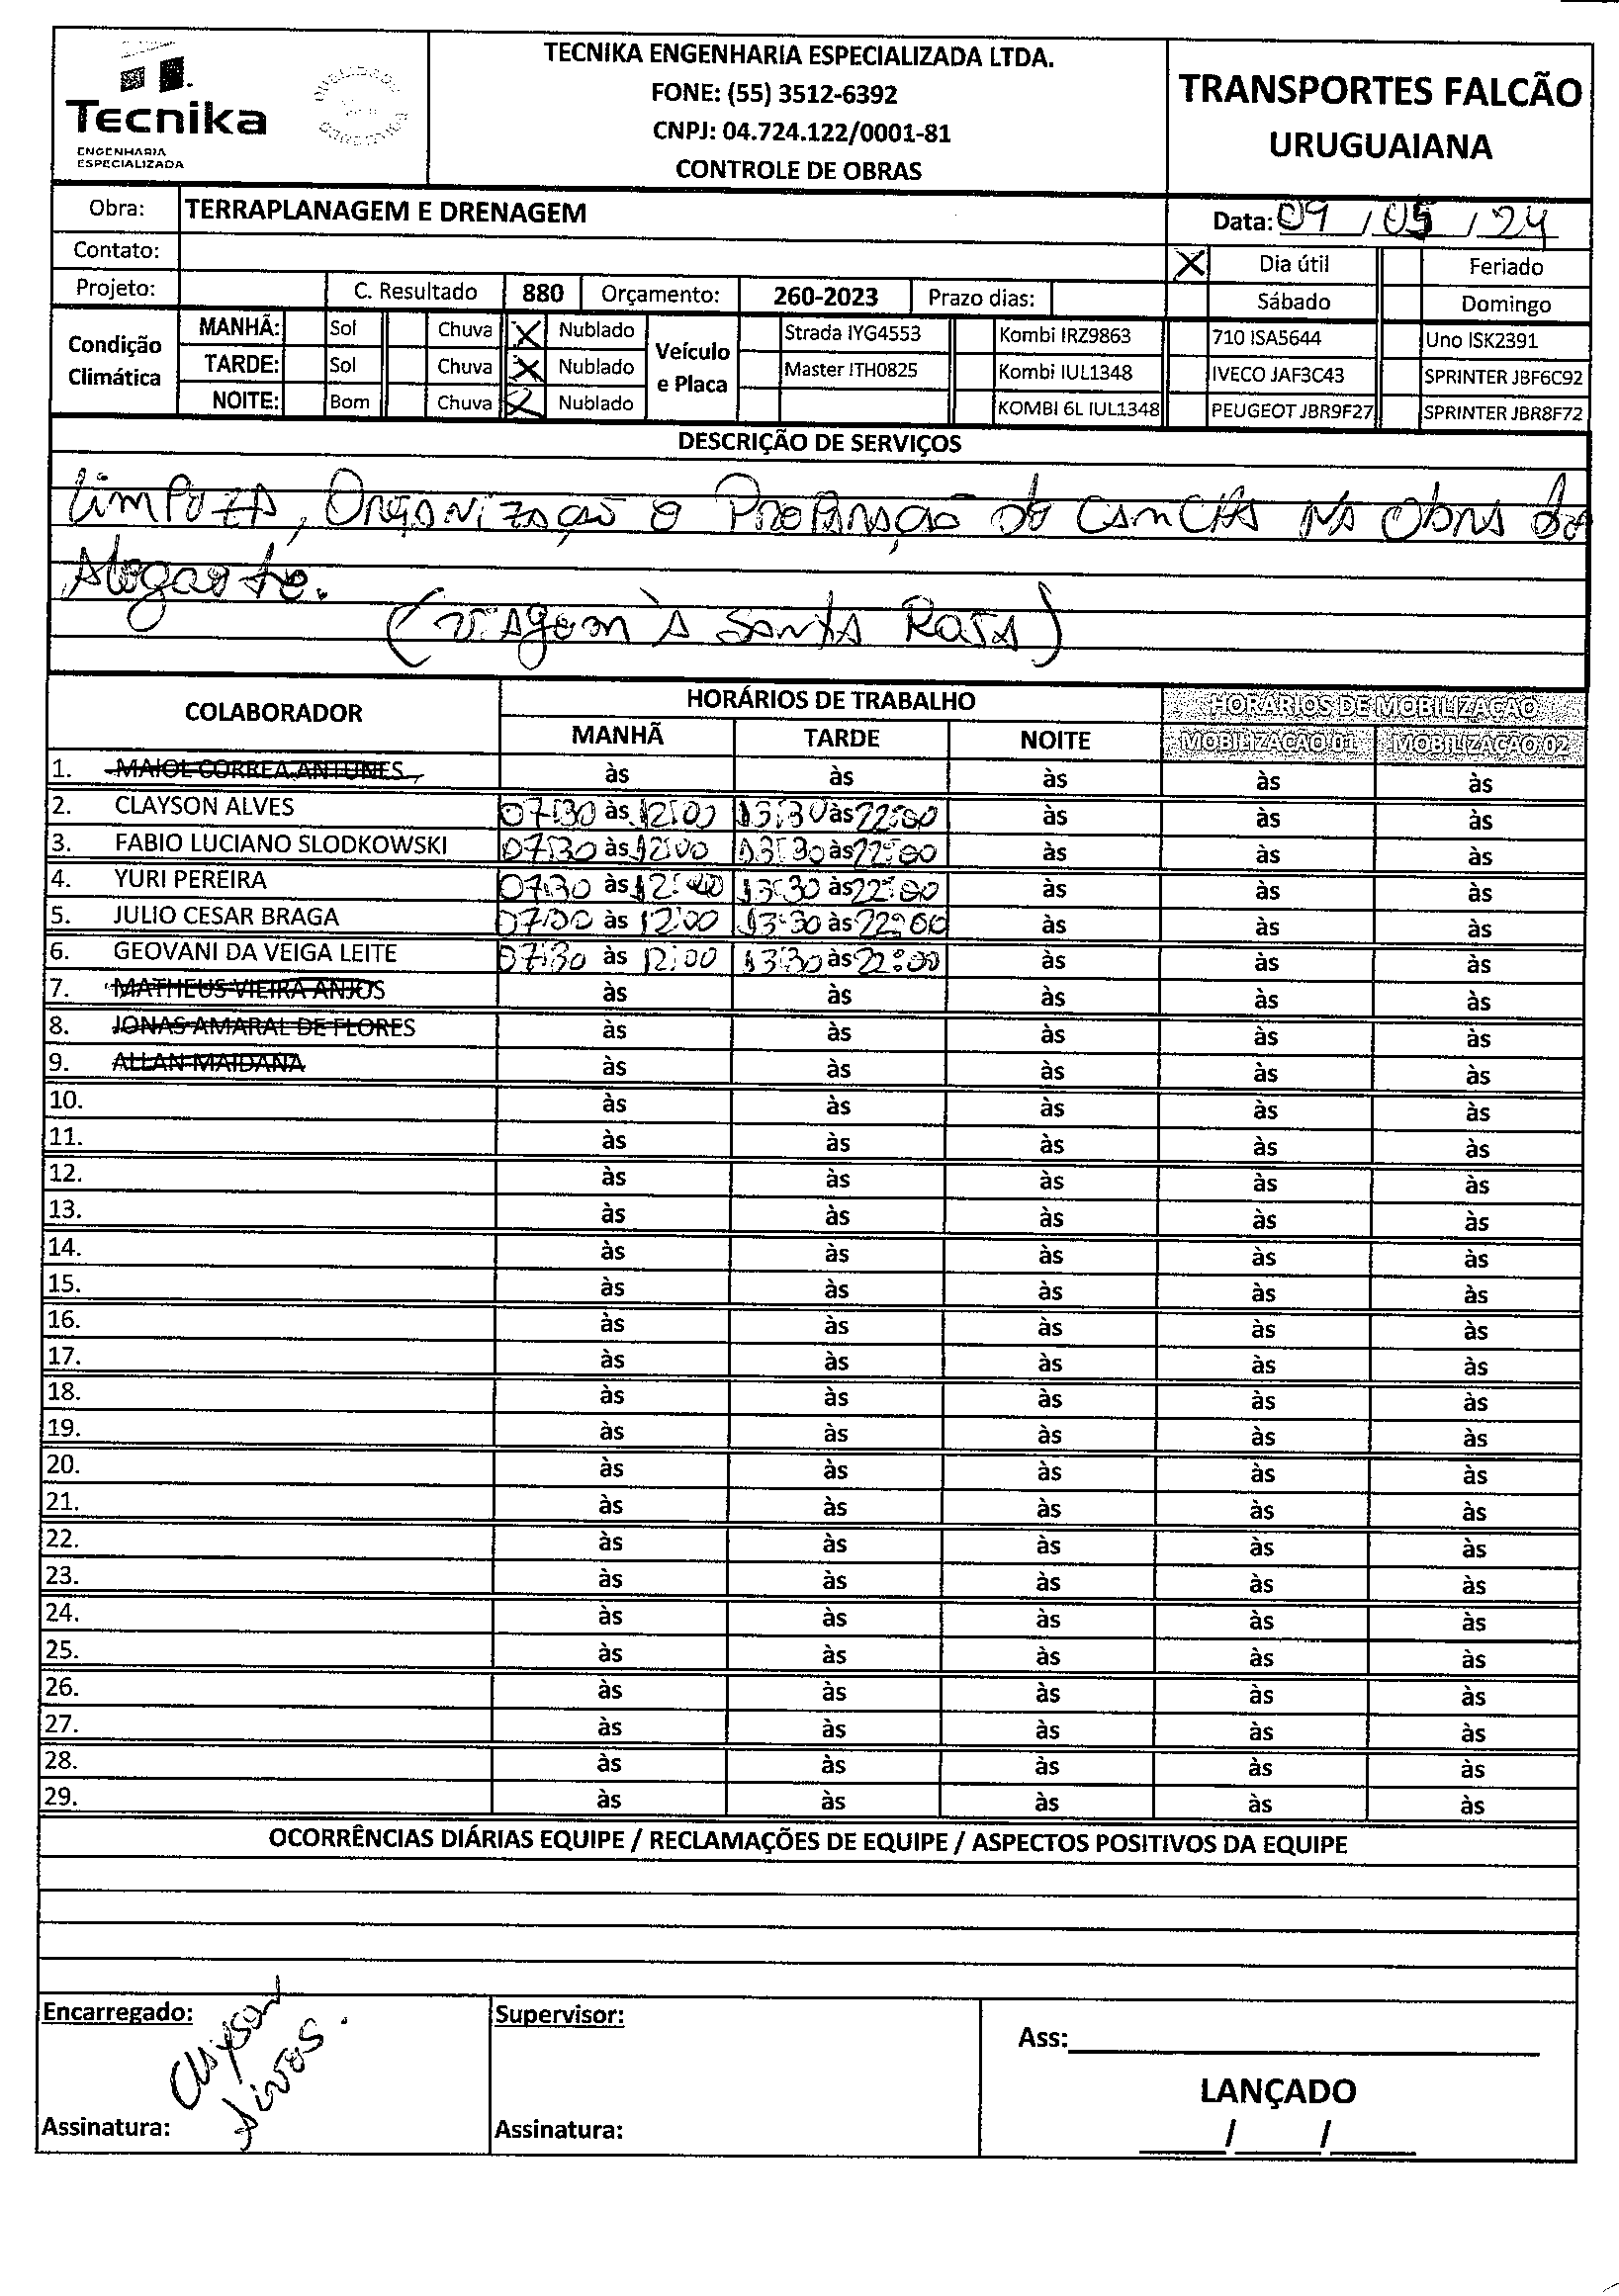 Tecnika
ENGENHARIA
ESPECIALIZADA
TECNIKA ENGENHARIA ESPECIALIZADA LTDA.
FONE: (55) 3512-6392
CNPJ: 04.724.122/0001-81
CONTROLE DE OBRAS
TRANSPORTES FALCÃO
URUGUAIANA
Obra: TERRAPLANAGEM E DRENAGEM
Data: 09 / 05 / 24
Contato:
X Dia útil Feriado
Projeto: C. Resultado 880 Orçamento: 260-2023 Prazo dias: Sábado Domingo
Condição Climática
MANHÃ: Sol Chuva X Nublado
TARDE: Sol Chuva X Nublado
NOITE: Bom Chuva X Nublado
Veículo e Placa
Strada IYG4553 Kombi IRZ9863 710 ISA5644 Uno ISK2391
Master ITH0825 Kombi IUL1348 IVECO JAF3C43 SPRINTER JBF6C92
KOMBI 6L IUL1348 PEUGEOT JBR9F27 SPRINTER JBR8F72
DESCRIÇÃO DE SERVIÇOS
Limpeza, Organização e Preparação de canchas na Obra de
Alegrete.
(Viagem à Santa Rosa)
COLABORADOR HORÁRIOS DE TRABALHO HORÁRIOS DE MOBILIZAÇÃO
MANHÃ TARDE NOITE MOBILIZAÇÃO 01 MOBILIZAÇÃO 02
1. MAIOL CORREA ANTUNES às às às às às
2. CLAYSON ALVES 07:30 às 12:00 13:30 às 22:00 às às às
3. FABIO LUCIANO SLODKOWSKI 07:30 às 12:00 13:30 às 22:00 às às às
4. YURI PEREIRA 07:30 às 12:00 13:30 às 22:00 às às às
5. JULIO CESAR BRAGA 07:30 às 12:00 13:30 às 22:00 às às às
6. GEOVANI DA VEIGA LEITE 07:30 às 12:00 13:30 às 22:00 às às às
7. MATHEUS VIEIRA ANJOS às às às às às
8. JONAS AMARAL DE FLORES às às às às às
9. ALLAN MAIDANA às às às às às
10. às às às às às
11. às às às às às
12. às às às às às
13. às às às às às
14. às às às às às
15. às às às às às
16. às às às às às
17. às às às às às
18. às às às às às
19. às às às às às
20. às às às às às
21. às às às às às
22. às às às às às
23. às às às às às
24. às às às às às
25. às às às às às
26. às às às às às
27. às às às às às
28. às às às às às
29. às às às às às
OCORRÊNCIAS DIÁRIAS EQUIPE / RECLAMAÇÕES DE EQUIPE / ASPECTOS POSITIVOS DA EQUIPE
Encarregado: Supervisor:
Clayson
Alves.
Ass:
LANÇADO
Assinatura: Assinatura:
/ /